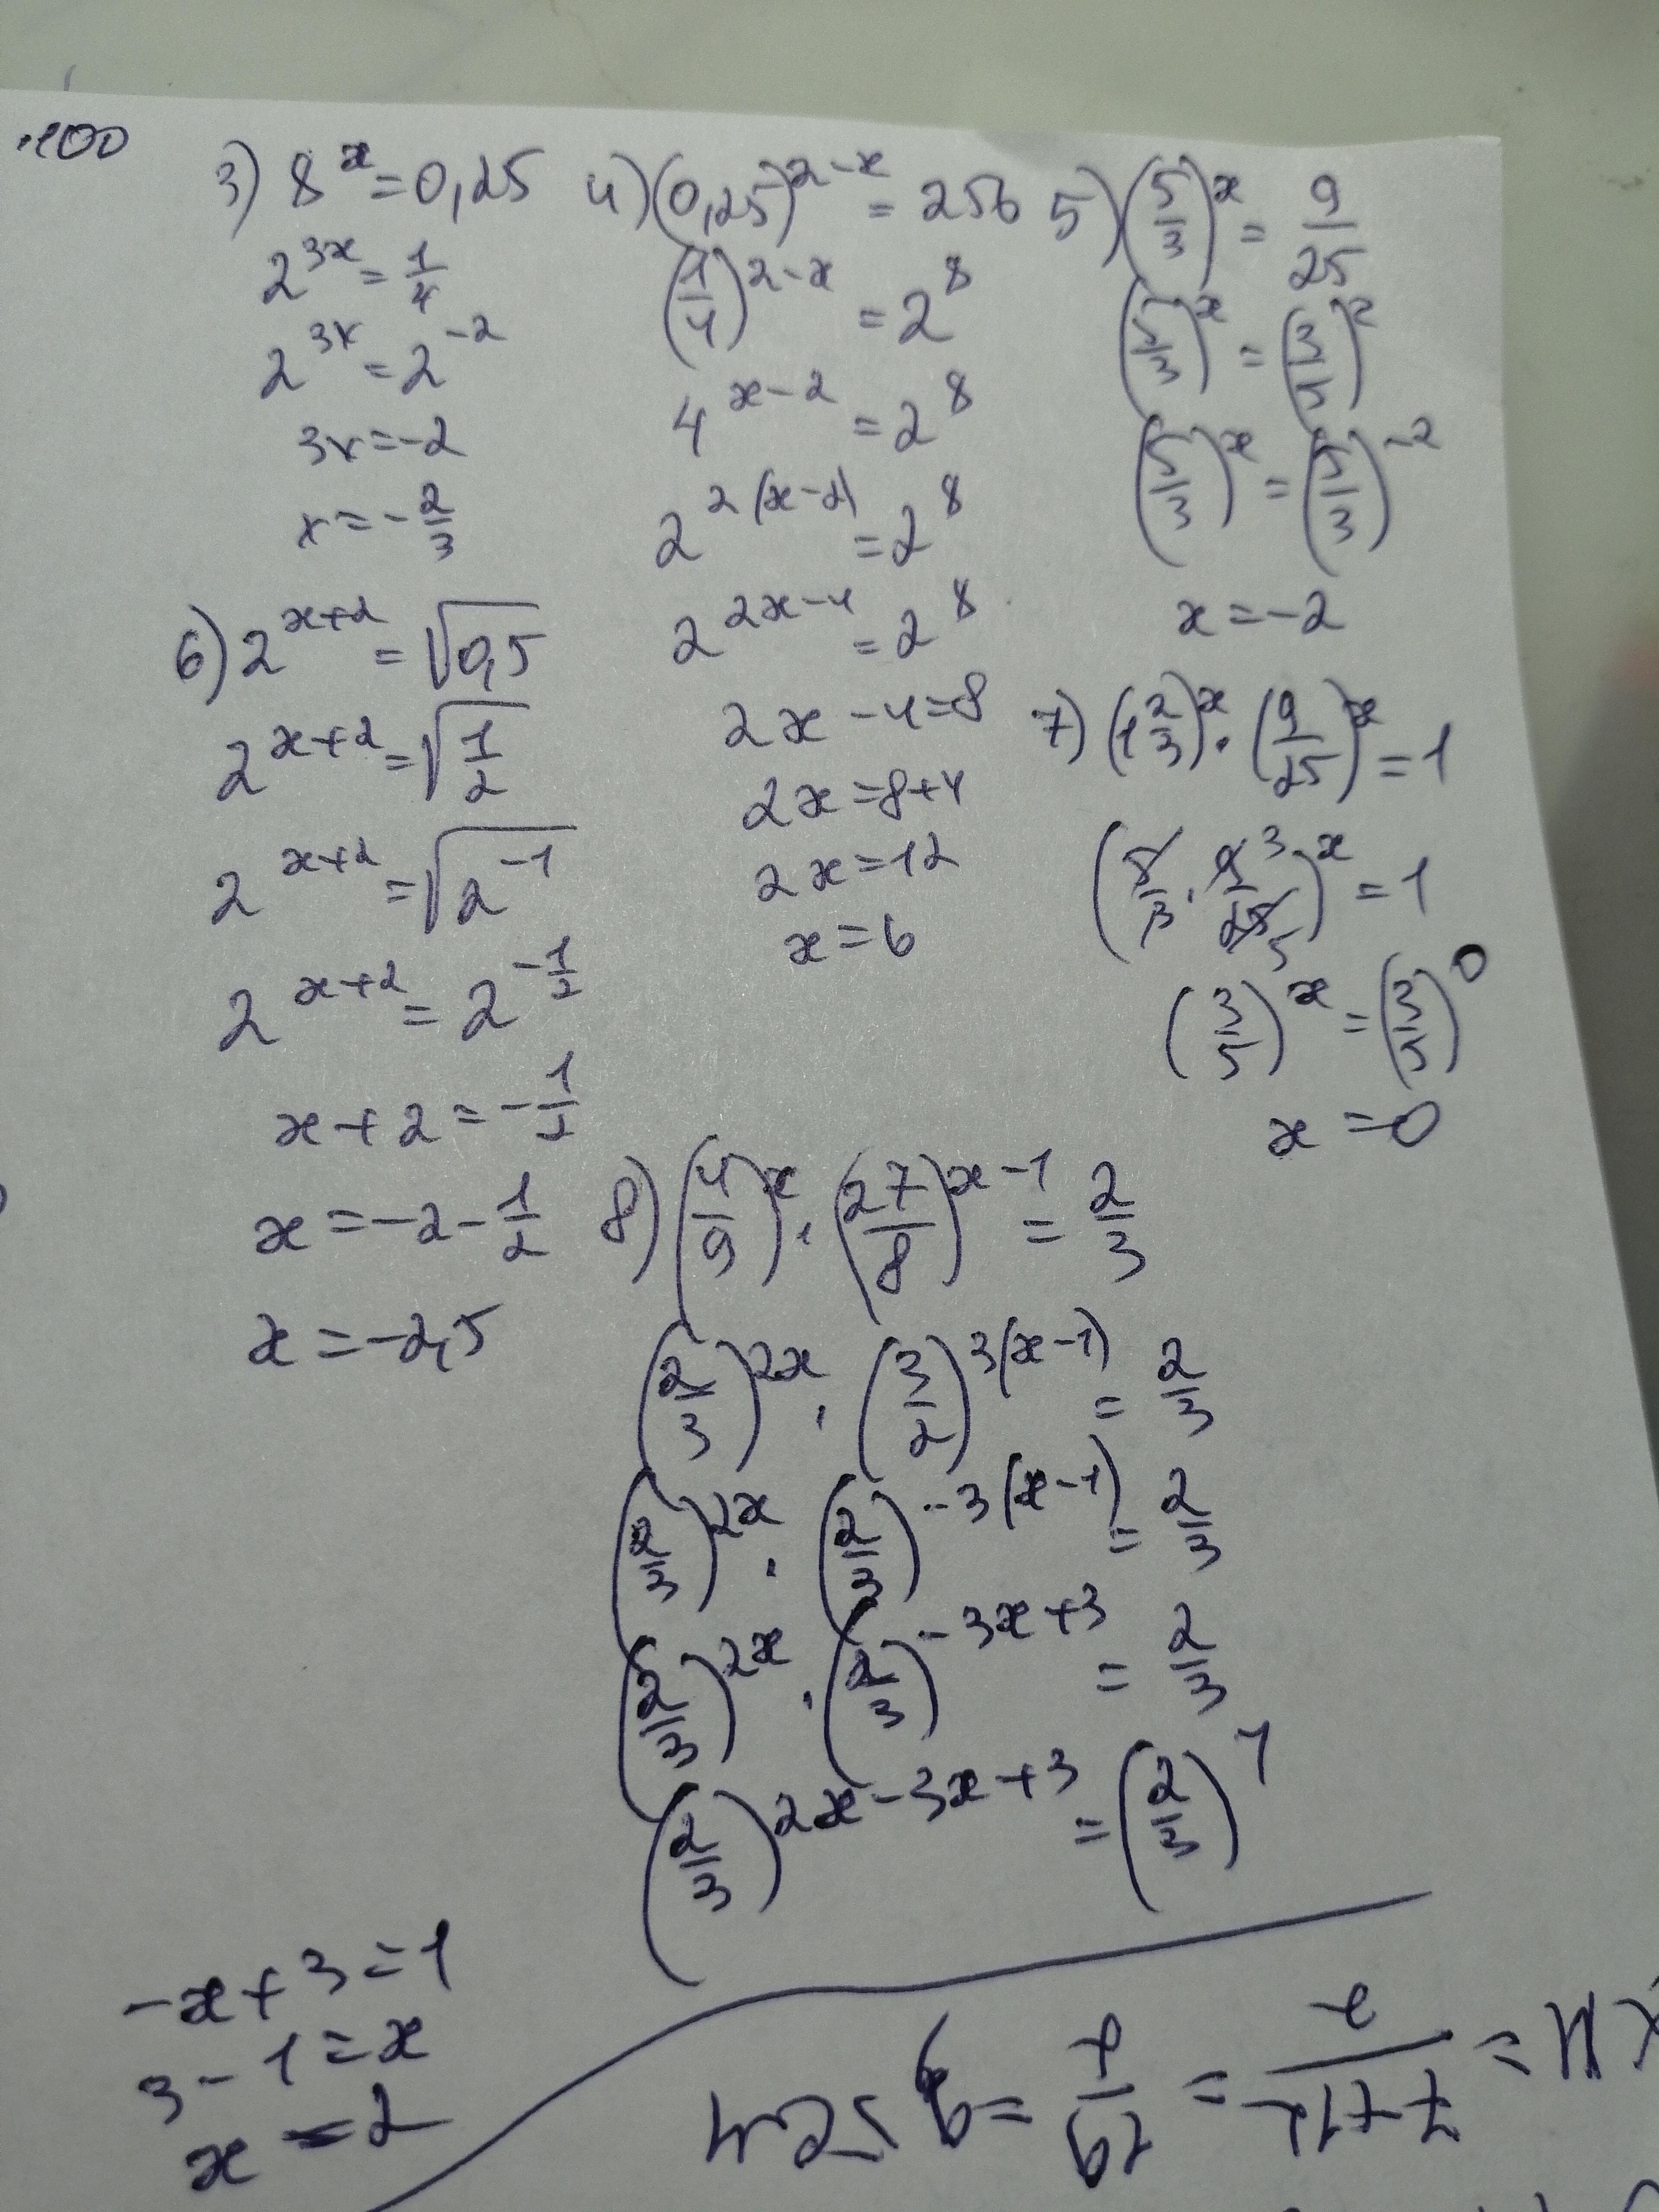 .100
3) 8^x = 0,25
2^{3x} = 1/4
2^{3x} = 2^{-2}
3x = -2
x = -2/3
4) (0,25)^{2-x} = 256
(1/4)^{2-x} = 2^8
4^{x-2} = 2^8
2^{2(x-2)} = 2^8
2^{2x-4} = 2^8
2x - 4 = 8
2x = 8+4
2x = 12
x = 6
5) (5/3)^x = 9/25
(5/3)^x = (3/5)^2
(5/3)^x = (5/3)^{-2}
x = -2
6) 2^{x+2} = √0,5
2^{x+2} = √(1/2)
2^{x+2} = √(2^{-1})
2^{x+2} = 2^{-1/2}
x + 2 = -1/2
x = -2 - 1/2
x = -2,5
7) (1 2/3)^x · (9/25)^x = 1
(5/3 · 9/25)^x = 1
3
5
(3/5)^x = (3/5)^0
x = 0
8) (4/9)^x · (27/8)^{x-1} = 2/3
(2/3)^{2x} · (3/2)^{3(x-1)} = 2/3
(2/3)^{2x} · (2/3)^{-3(x-1)} = 2/3
(2/3)^{2x} · (2/3)^{-3x+3} = 2/3
(2/3)^{2x-3x+3} = (2/3)^1
-x + 3 = 1
3 - 1 = x
x = 2